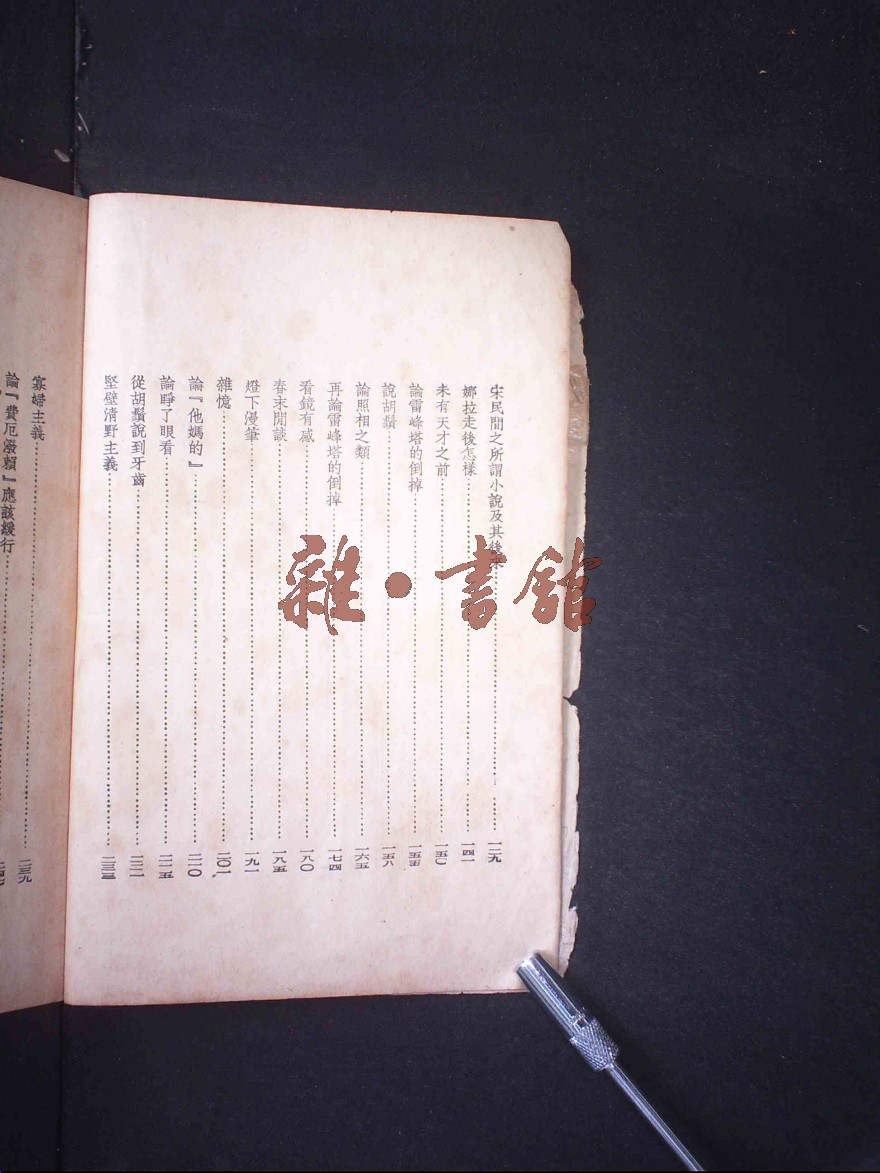 宋民間之所謂小說及其後來……一二九
娜拉走後怎樣……一四一
未有天才之前……一五〇
論雷峰塔的倒掉……一五五
說胡鬚……一五八
論照相之類……一六五
再論雷峰塔的倒掉……一七四
看鏡有感……一八〇
春末閒談……一八五
燈下漫筆……一九一
雜憶……二〇一
論『他媽的』……二一〇
論睜了眼看……二一五
從胡鬚說到牙齒……二二一
堅壁清野主義……二三三
寡婦主義……二三九
論『費厄潑賴』應該緩行……二四七
雜·書館